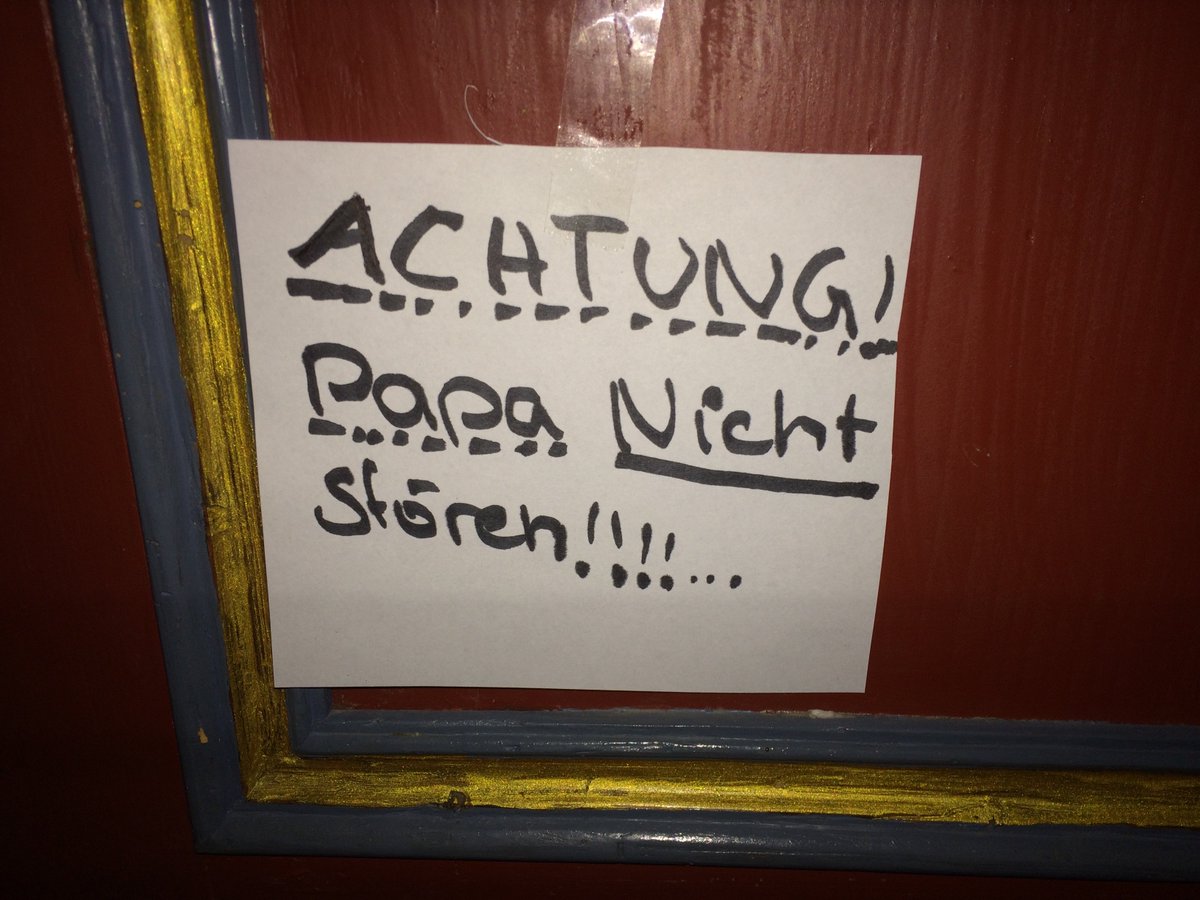 ACHTUNG!
Papa Nicht
Stören!!!!...